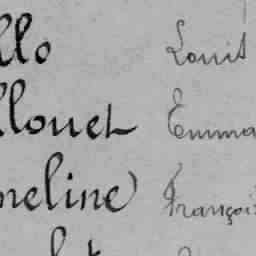 llo Louis
llouet Emma
meline François